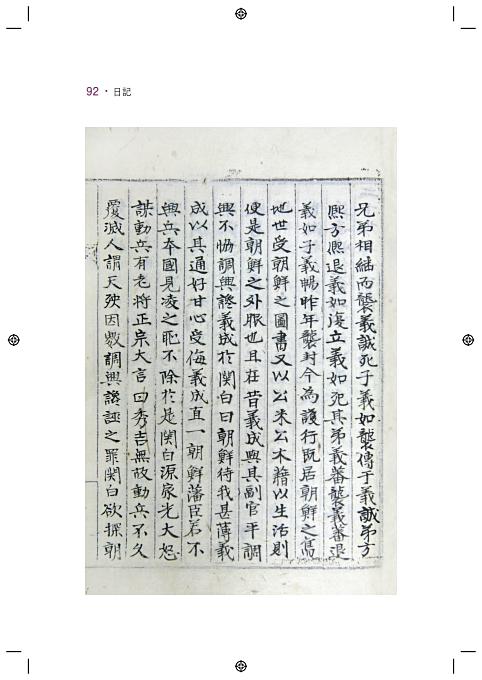 92 · 日記
兄弟相結而襲義誠死子義如襲傳于義誠弟方
熙方熙退義如復立義如死其弟義蕃襲義蕃退
義如子義暢昨年襲封今為護行既居朝鮮之
地世受朝鮮之圖書又以公米公木藉以生活則
便是朝鮮之外服也且在昔義成與其副官平調
興不恊調興讒義成於関白曰朝鮮待我甚薄義
成以其通好甘心受侮義成直一朝鮮藩臣若不
興兵本國見凌之耻不除於是関白源家光大怒
謀動兵有老將正宗大言曰秀吉無故動兵不久
覆滅人謂天殃因數調興讒誣之罪関白欲探朝